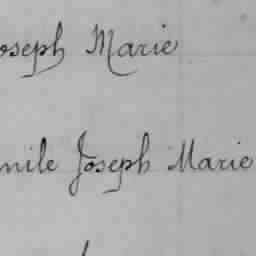 oseph Marie
mile Joseph Marie